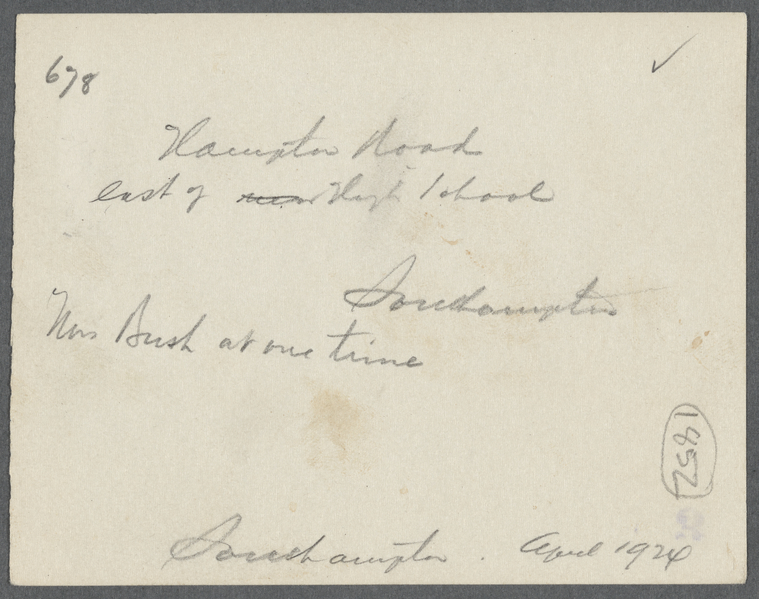 678 ✓
Hampton Road
east of near High School
Southampton
Mrs Bush at one time
1852
Southampton. April 1924